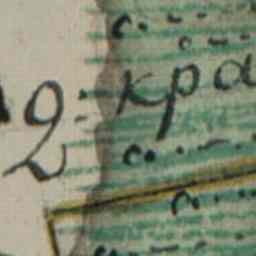 2: кра